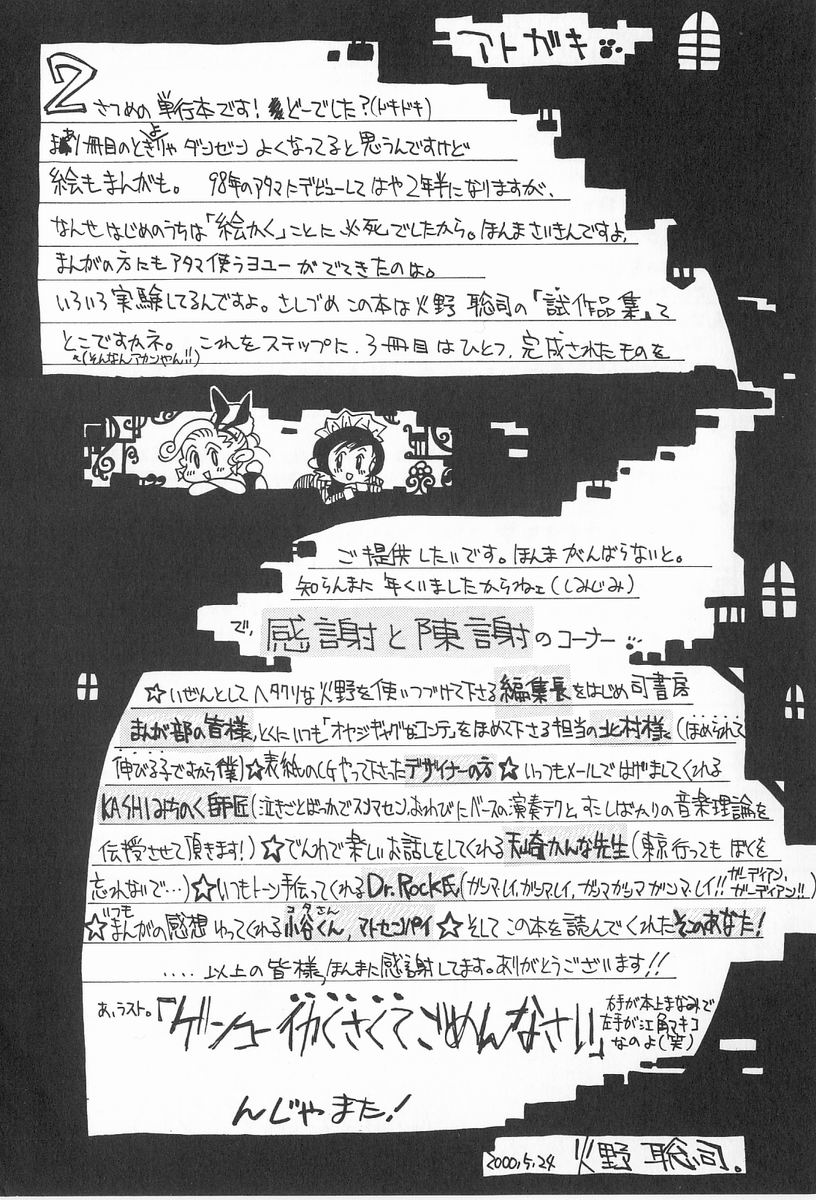 アトガキ
2さつめの単行本です！どーでした？（ドキドキ）
まあ1冊目のときよりゃダンゼンよくなってると思うんですけど
絵もまんがも。 98年のアタマにデビューしてはや2年半になりますが、
なんせはじめのうちは「絵かく」ことに必死でしたから。ほんまさいきんですよ、
まんがの方にもアタマ使うヨユーがでてきたのは。
いろいろ実験してるんですよ。さしづめこの本は火野聡司の「試作品集」て
とこですかネ。 これをステップに、3冊目はひとつ、完成されたものを
（そんなんアカンやん!!）
ご提供したいです。ほんまがんばらないと。
知らんまに年くいましたからねェ（しみじみ）
で、感謝と陳謝のコーナー
☆いぜんとしてヘタクリな火野を使いつづけて下さる編集長をはじめ司書房
まんが部の皆様、とくにいつも「オヤジギャグなコンテ」をほめて下さる担当の北村様（ほめられて
伸びる子ですから僕）☆表紙のCGやって下さったデザイナーの方☆いっつもメールではげましてくれる
KASHIみちのく師匠（泣きごとばっかでスンマセン。おわびにベースの演奏テクと、すこしばかりの音楽理論を
伝授させて頂きます！）☆でんわで楽しいお話しをしてくれる天崎かんな先生（東京行ってもぼくを
忘れないで…）☆いつもトーン手伝ってくれるDr.Rock氏（ガンマ・レイ、ガンマレイ、ガンマガンマガンマ・レイ!!ガーディアン、ガーディアン!!）
☆いつもまんがの感想ゆってくれる小谷くん、マトセンパイ☆そしてこの本を読んでくれたそこのあなた！
コタさん
....以上の皆様、ほんまに感謝してます。ありがとうございます!!
あ、ラスト。「ゲンコーイカくさくてごめんなさい」
右手が本上まなみで
左手が江角マキコ
なのよ（笑）
んじゃまた！
2000.5.24 火野聡司。